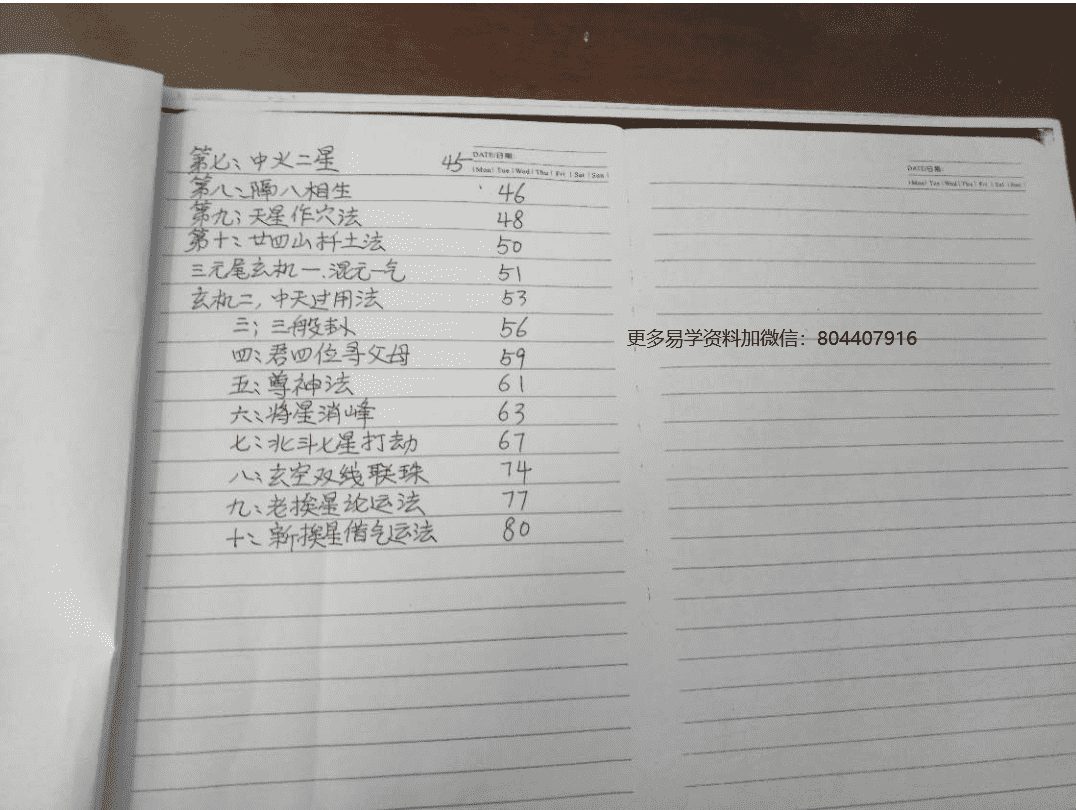 第七：中火二星 45
DATE/日期:
Mon Tue Wed Thu Fri Sat Sun
第八：隔八相生 46
第九；天星作穴法 48
第十：廿四山扦土法 50
三元尾玄机一、混元一气 51
玄机二，中天过用法 53
三；三般卦 56
四：君四位寻父母 59
五：尊神法 61
六：将星消峰 63
七：北斗七星打劫 67
八：玄空双线联珠 74
九：老挨星论运法 77
十：新挨星借气运法 80
DATE/日期:
Mon Tue Wed Thu Fri Sat Sun
更多易学资料加微信：804407916